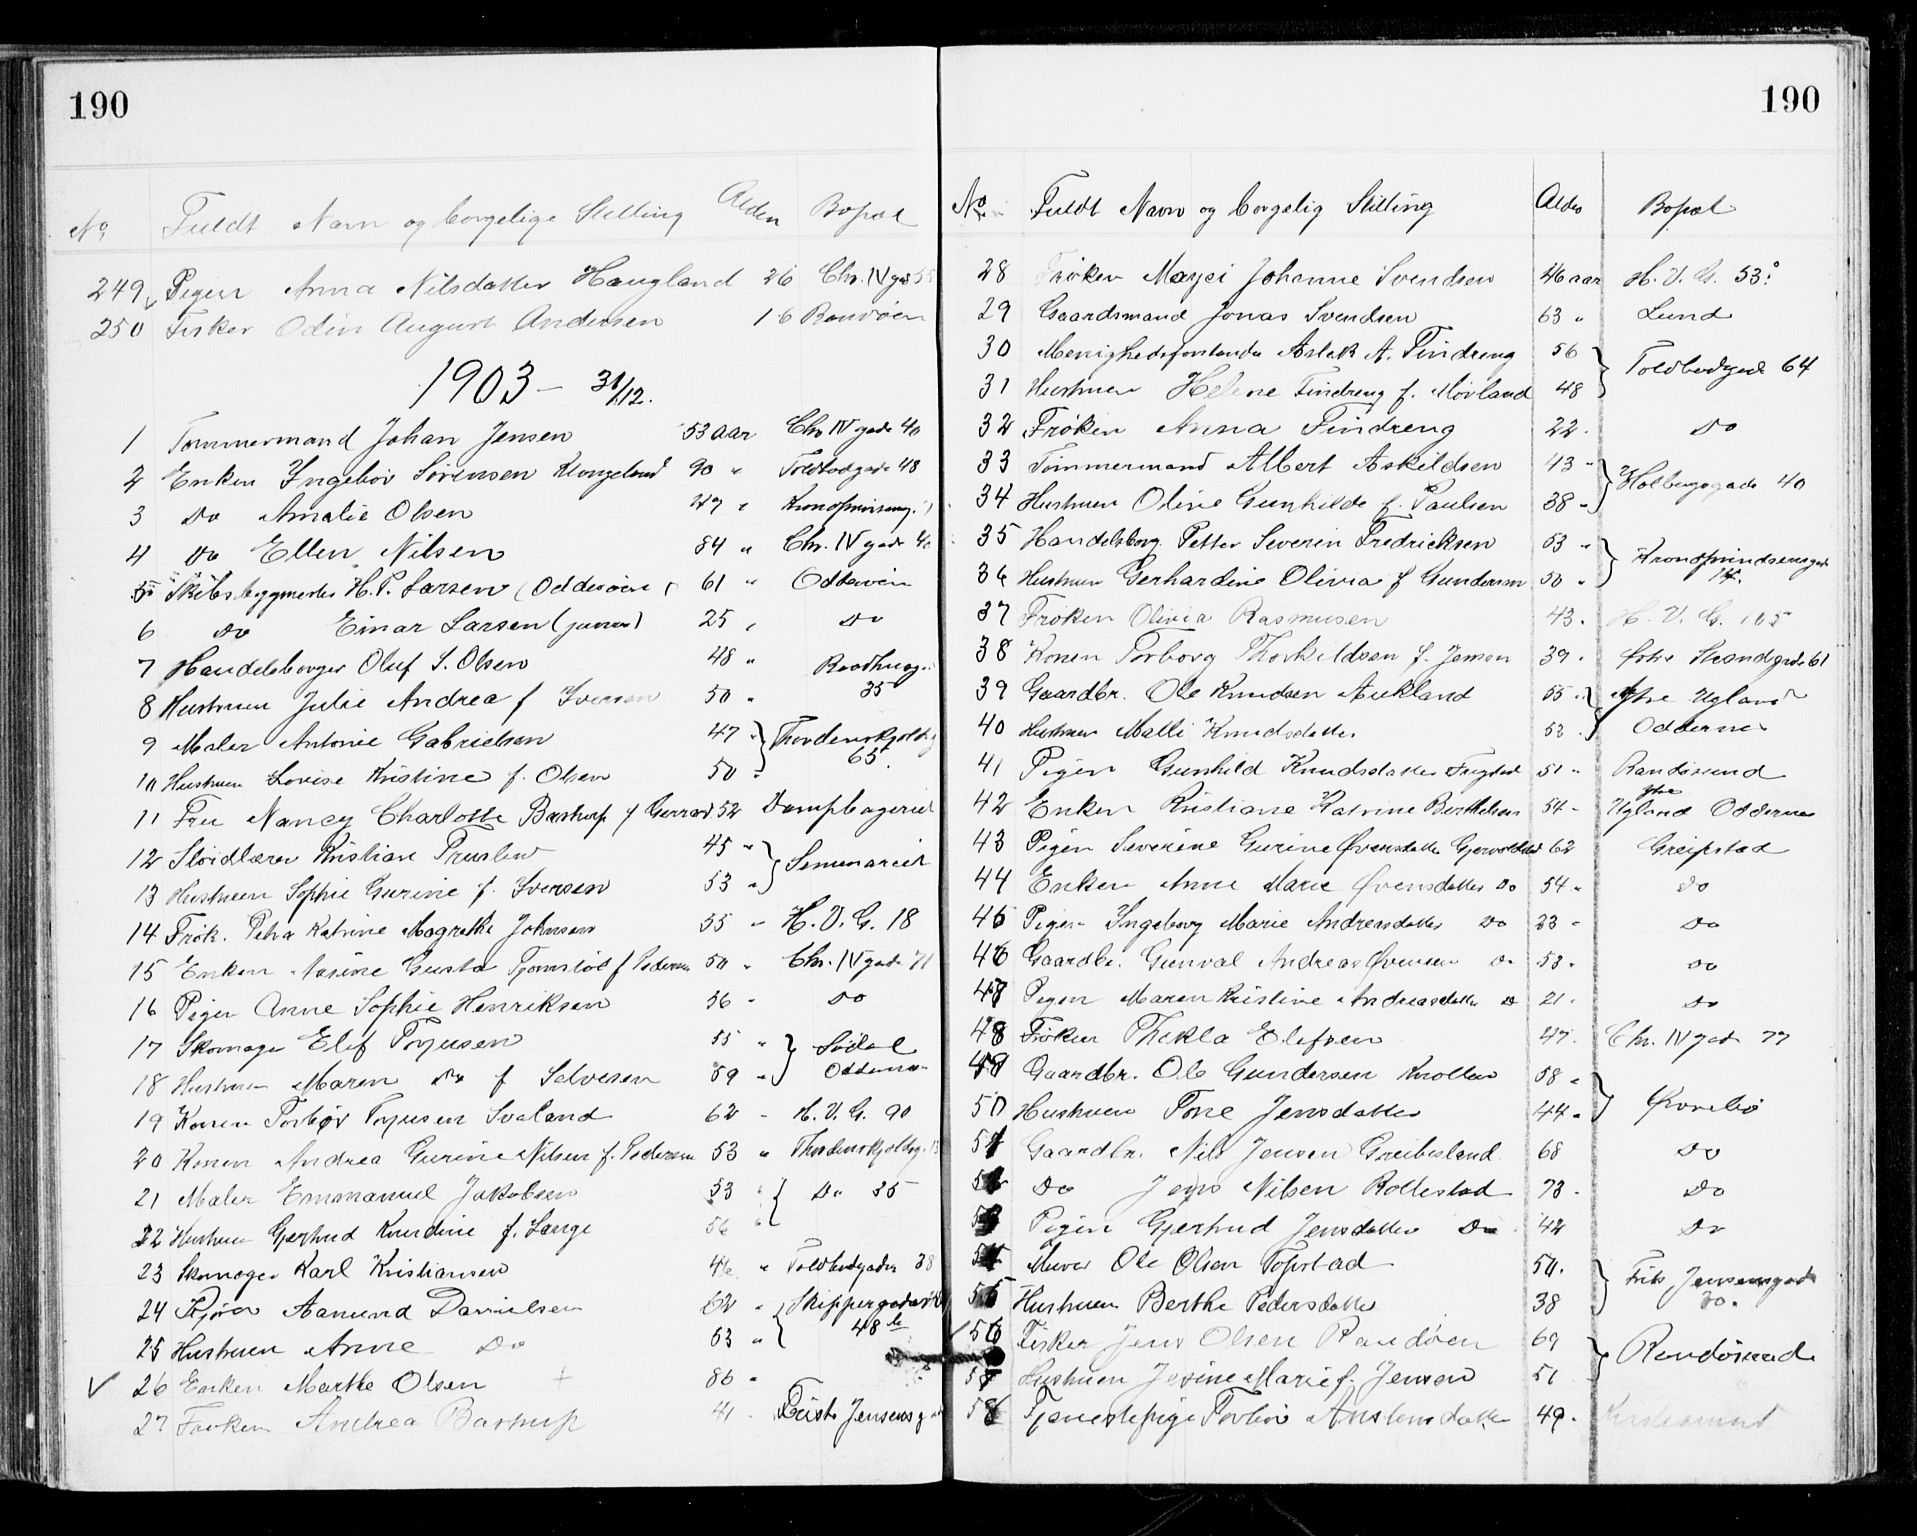 190
No Fuldt Navn og borgelige Stilling Alder Bopæl
249 Pigen Anna Nilsdatter Haugland 26 Chr. IV gd 55
250 Fisker Odin August Andersen 16 Randøen
1903 - 31/12.
1 Tømmermand Johan Jensen 53 aar Chr IV gade 40
2 Enken Ingebör Sørensen Klungeland 90 " Toldbodgade 48
3 Do Amalie Olsen 47 "
4 Do Ellen Nilsen 84 " Chr. IV gade 40
5 Skibsbyggmester H. P. Larsen (Odderøen) 61 " Odderøen
6 Do Einar Larsen (junior) 25 " Do
7 Handelsborger Oluf S. Olsen 48 " Raadhusg.
8 Hustruen Julie Andrea f Iversen 50 " 35
9 Maler Antonie Gabrielsen 47 " Thordenskjoldsg
10 Hustruen Lovise Kristine f. Olsen 50 " 65
11 Fru Nancy Charlotte Bastrup f Gerrard 52 Dampbageriet
12 Sløidlærer Kristian Truslew 45 " Seminariet
13 Hustruen Sophie Gurine f. Iversen 53 "
14 Frøk. Petra Katrine Magrethe Johnsen 55 " H. V. G. 18
15 Enken Gusta f Pedersen 50 " Chr. IV gade 71
16 Pigen Anne Sophie Henriksen 36 " Do
17 Skomager Elef Tryusen 55 " Sødal
18 Hustruen Maren Do f Salvesen 59 " Oddernes
19 Konen Torbør Tryusen Svaland 62 " H. V. G. 90
20 Konen Andrea Gurine Nilsen f. Pedersen 53 " Thordenskjoldsg.
21 Maler Emmanuel Jakobsen 53 " Do 35
22 Hustruen Gjertrud Knudine f. Lange 56 "
23 Skomager Karl Kristiansen 46 " Toldbodgaden 38
24 Aanund Danielsen 62 " Skippergaden
25 Hustruen Anne Do 63 " 48 b
26 Enken Marthe Olsen 86 "
27 Frøken Andrea Bastrup 41 Jensensg
190
No Fuldt Navn og borgelig Stilling Alder Bopæl
28 Frøken Johanne Svendsen 46 aar H. V. G. 53
29 Gaardsmand Jonas Svendsen 63 " Lund
30 Menighedsforstander Aslak A. Tindreng 56 Toldbodgade 64
31 Hustruen Helene Tindreng f. Movland 48
32 Frøken Anna Tindreng 22. Do
33 Tømmermand Albert Askildsen 43 " Holbergsgade 40
34 Hustruen Oline Gunhilde f. Paulsen 38 "
35 Handelsborg. Petter Severin Fredricksen 53 " Kronsprindsensgade
36 Hustruen Gerhardine Olivia f Gundersen 50 " 14.
37 Frøken Olivia Rasmusen 43. H. V. G. 105
38 Konen Torborg Thorkildsen f. Jensen 39. Østre Strandgade 61
39 Gaardbr. Ole Knudsen Aukland 55 " Ytre Ugland
40 Hustruen Malli Knudsdatter 53 Oddernes
41 Pigen Gunhild Knudsdatter 51 " Randøsund
42 Enken Kristiane Katrine Berthelsen 54 - Ytre Ugland Oddernes
43 Pigen Severine Gurine Øvensdatter 62 Greipstad
44 Enken Anne Marie Øvensdatter Do 54 " Do
45 Pigen Ingeborg Marie Andreasdatter Do 23 - Do
46 Gaardbr. Gunval Andreas Øvensen Do 53. Do
47 Pigen Maren Kristine Andreasdatter Do 21. Do
48 Frøken Thekla Elefsen 47. Chr. IV gade 77
49 Gaardbr. Ole Gundersen 58 " Øvrebø
50 Hustruen Tone Jensdatter 44 "
51 Gaardbr. Nils Jensen Greibesland 68 Do
52 Do Jens Nilsen Rollestad 73. Do
53 Pigen Gjertrud Jensdatter Do 42 Do
54 Murer Ole Olsen Topstad 50. Frits Jensensgade
55 Hustruen Berthe Pedersdatter 38 30.
56 Fisker Jens Olsen Randøen 69 Randøsund
57 Hustruen Josine Marie f. Jensen 51
58 Tjenestepige Torbör Anstensdatter 49.